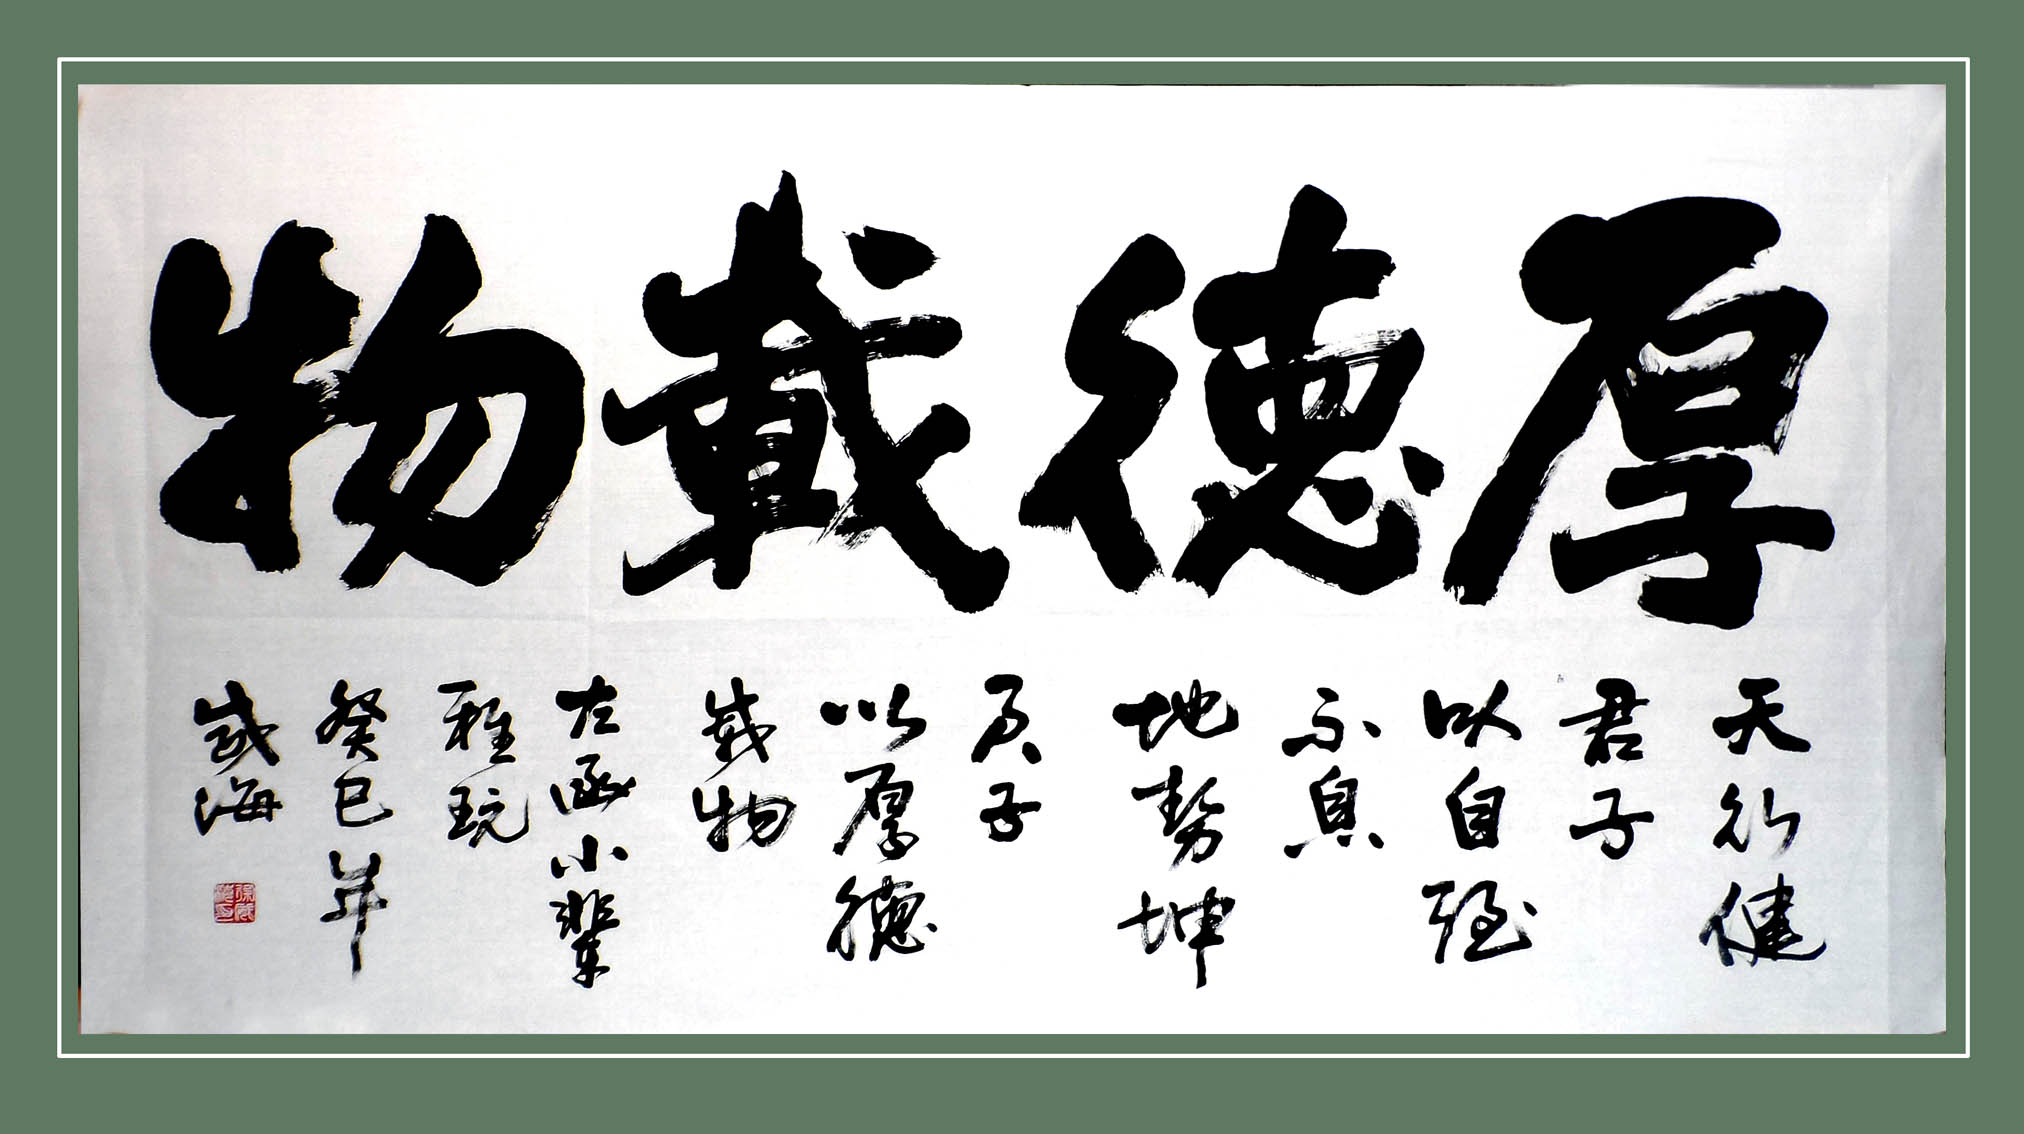 厚德載物
天行健
君子
以自强
不息
地势坤
君子
以厚德
载物
左函小辈
雅玩
癸巳年
威海